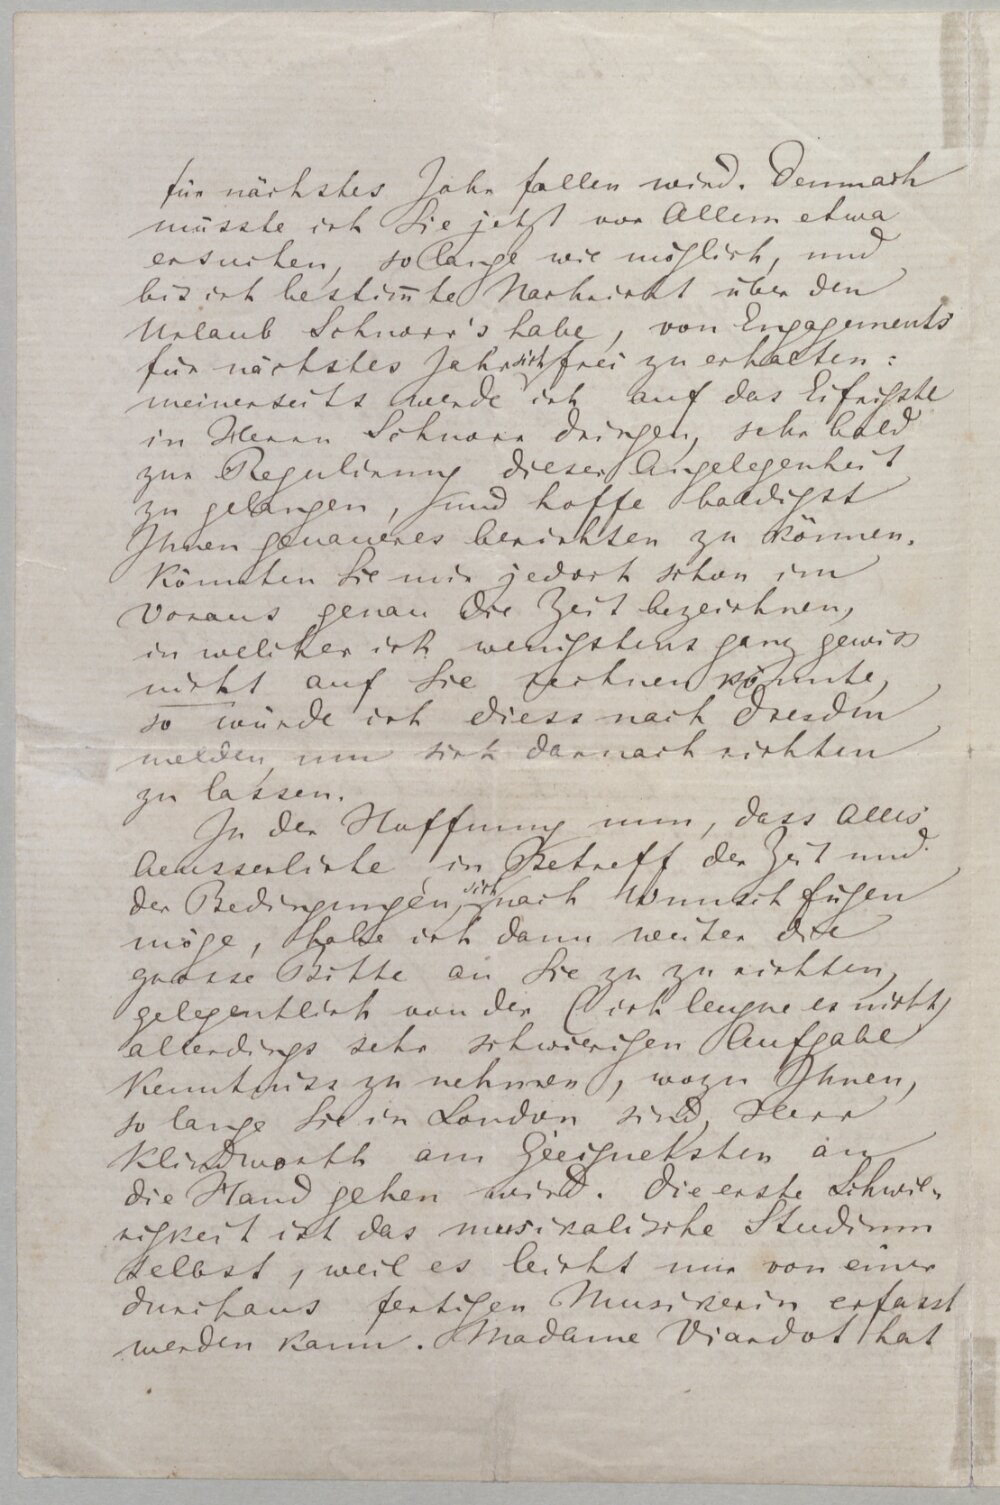 für nächstes Jahr fallen wird. Demnach
müsste ich Sie jetzt vor Allem etwa
ersuchen, so lange wie möglich, und
bis ich bestim̅te Nachricht über den
Urlaub Schnorr's habe, von Engagements
für nächstes Jahr sich frei zu erhalten:
meinerseits werde ich auf das Eifrigste
in Herrn Schnorr dringen, sehr bald
zur Regulirung dieser Angelegenheit
zu gelangen, und hoffe baldigst
Ihnen genaueres berichten zu können.
Könnten Sie mir jedoch schon im
Voraus genau die Zeit bezeichnen,
in welcher ich wenigstens ganz gewiss
nicht auf Sie rechnen könnte,
so würde ich diess nach Dresden
melden, um sich darnach richten
zu lassen.
In der Hoffnung nun, dass Alles
Aeusserliche in Betreff der Zeit und
der Bedingungen, sich nach Wunsch fügen
möge, habe ich dann weiter die
grosse Bitte an Sie zu zu richten,
gelegentlich von der (ich leugne es nicht)
allerdings sehr schwierigen Aufgabe
Kenntniss zu nehmen, wozu Ihnen,
so lange Sie in London sind, Herr
Klindworth am Geeignetsten an
die Hand gehen wird. Die erste Schwie-
rigkeit ist das musikalische Studium
selbst, weil es leicht nur von einer
durchaus fertigen Musikerin erfasst
werden kann. Madame Viardot hat